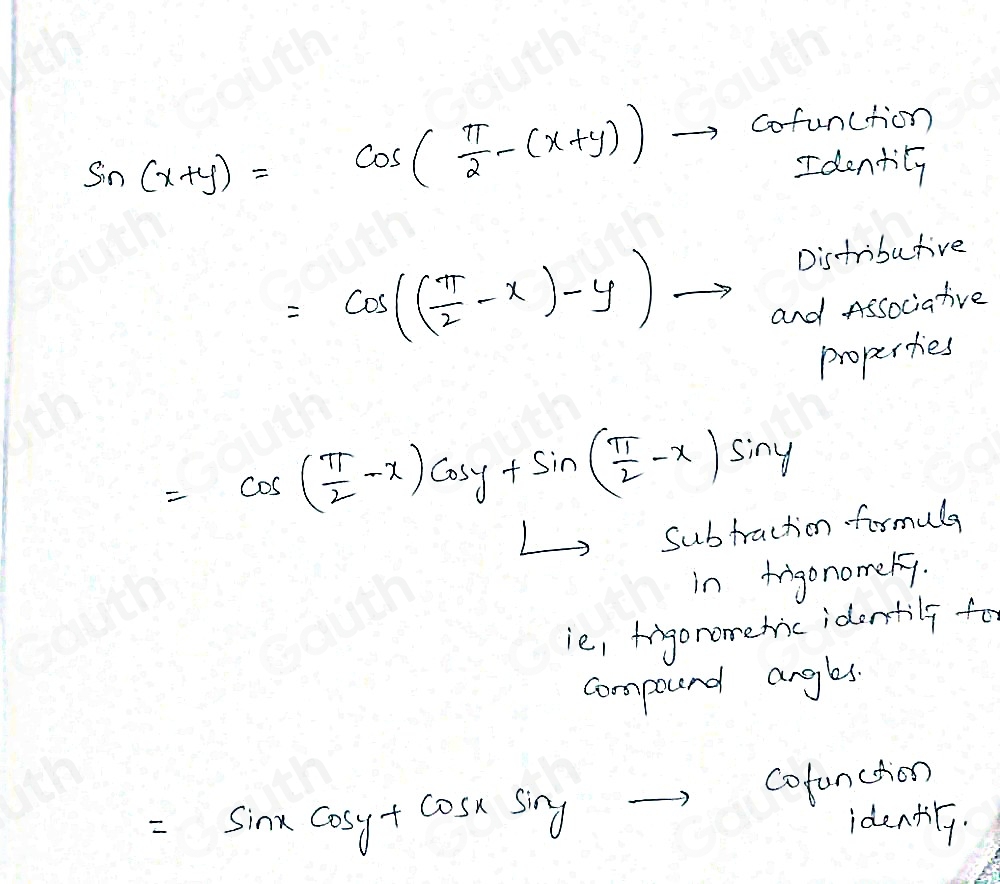 Sin (x+y) = cos(π/2 - (x+y)) → Cofunction
Identity
= cos((π/2 - x) - y) → Distributive
and Associative
properties
= cos(π/2 - x) Cosy + Sin(π/2 - x) Siny
↳ Subtraction formula
in trigonometry.
ie, trigonometric identity for
compound angles.
= Sinx Cosy + Cosx Siny → Cofunction
identity.
Gauth